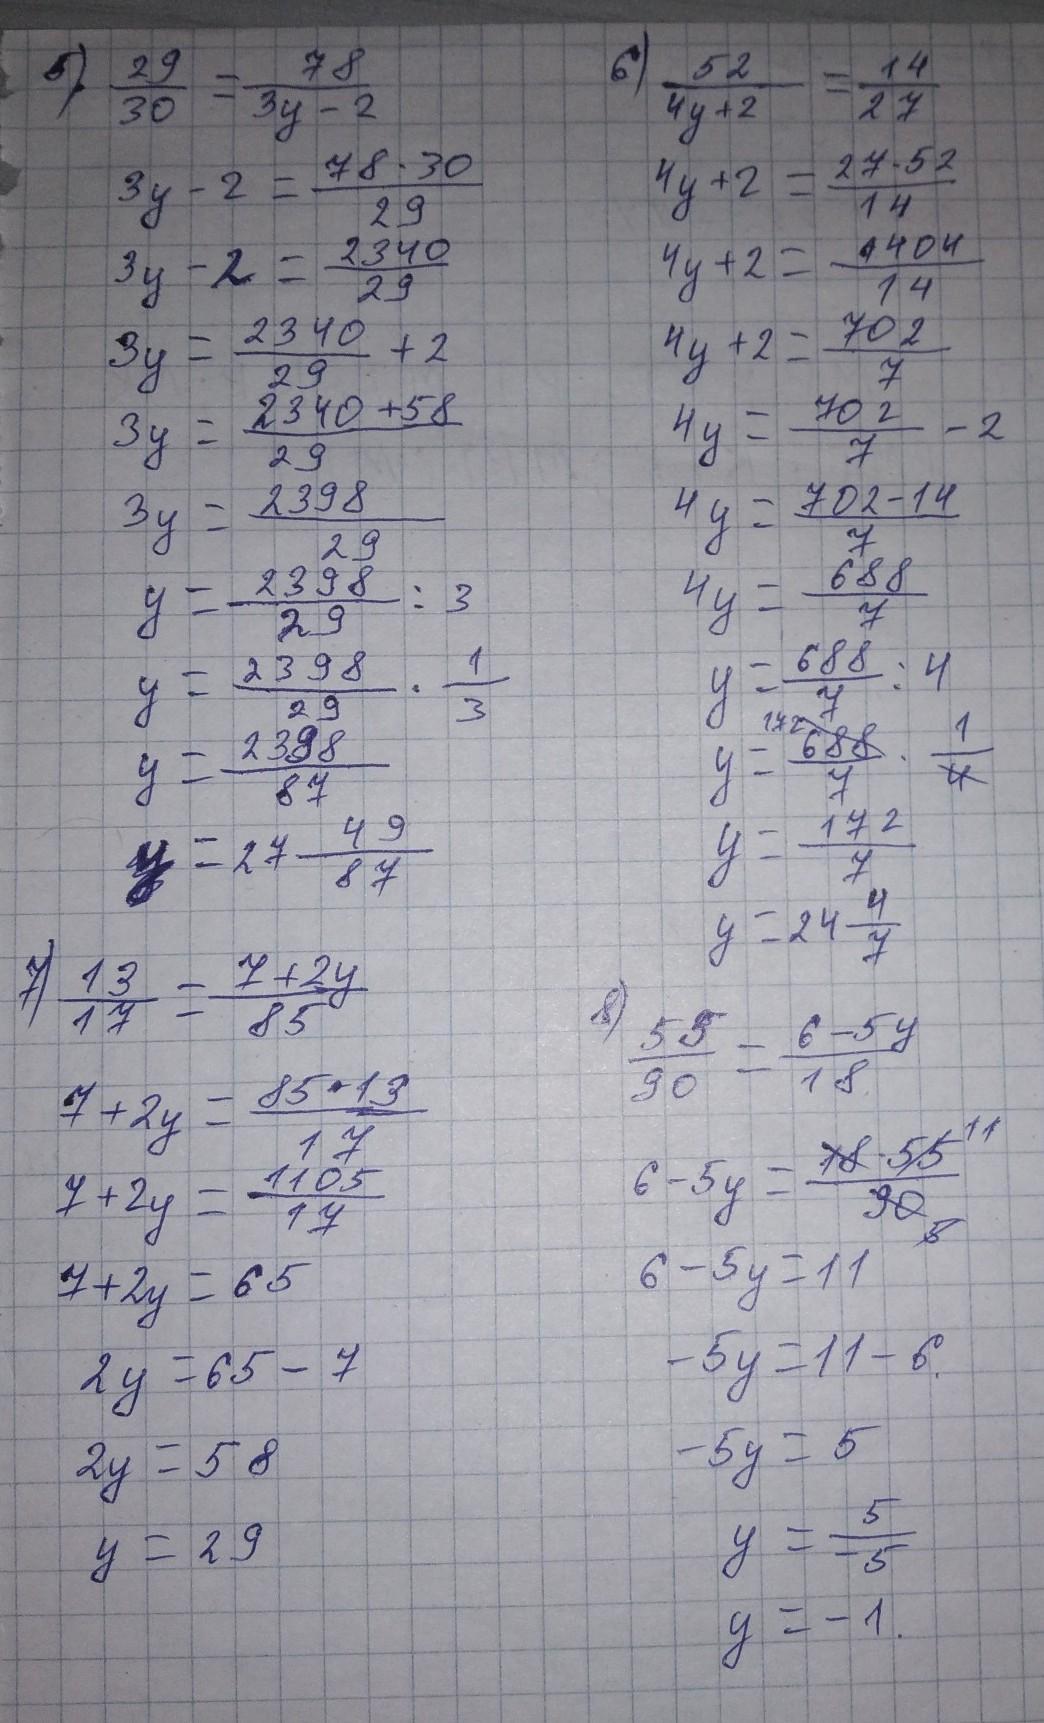 5) 29/30 = 78/(3y - 2)
3y - 2 = (78 · 30)/29
3y - 2 = 2340/29
3y = 2340/29 + 2
3y = (2340 + 58)/29
3y = 2398/29
y = 2398/29 : 3
y = 2398/29 · 1/3
y = 2398/87
y = 27 49/87
6) 52/(4y + 2) = 14/27
4y + 2 = (27 · 52)/14
4y + 2 = 1404/14
4y + 2 = 702/7
4y = 702/7 - 2
4y = (702 - 14)/7
4y = 688/7
y = 688/7 : 4
172
y = 688/7 · 1/4
y = 172/7
y = 24 4/7
7) 13/17 = (7 + 2y)/85
7 + 2y = (85 · 13)/17
7 + 2y = 1105/17
7 + 2y = 65
2y = 65 - 7
2y = 58
y = 29
8) 55/90 = (6 - 5y)/18
11
6 - 5y = (18 · 55)/90
5
6 - 5y = 11
-5y = 11 - 6.
-5y = 5
y = 5/-5
y = -1.